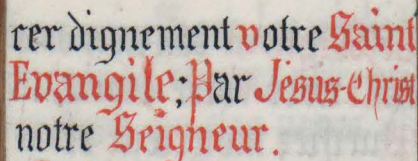 cer dignement votre Saint
Evangile; Par Jesus-Christ
notre Seigneur.